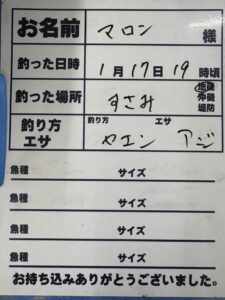 お名前 マロン 様
釣った日時 1月17日19時頃
釣った場所 すさみ 地磯 沖磯 堤防
釣り方 エサ 釣り方 ヤエン エサ アジ
魚種 サイズ
魚種 サイズ
魚種 サイズ
魚種 サイズ
お持ち込みありがとうございました。